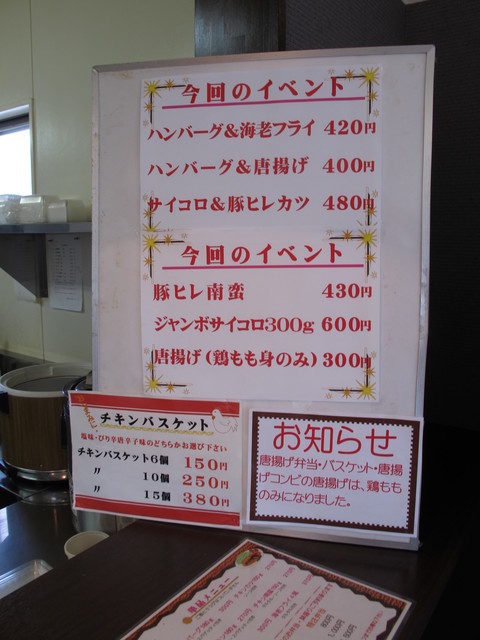 今回のイベント
ハンバーグ&海老フライ 420円
ハンバーグ&唐揚げ 400円
サイコロ&豚ヒレカツ 480円
今回のイベント
豚ヒレ南蛮 430円
ジャンボサイコロ300g 600円
唐揚げ(鶏もも身のみ) 300円
チキンバスケット
塩味・ぴり辛唐辛子味のどちらかお選び下さい
チキンバスケット6個 150円
〃 10個 250円
〃 15個 380円
お知らせ
唐揚げ弁当・バスケット・唐揚
げコンビの唐揚げは、鶏もも
のみになりました。
単品メニュー